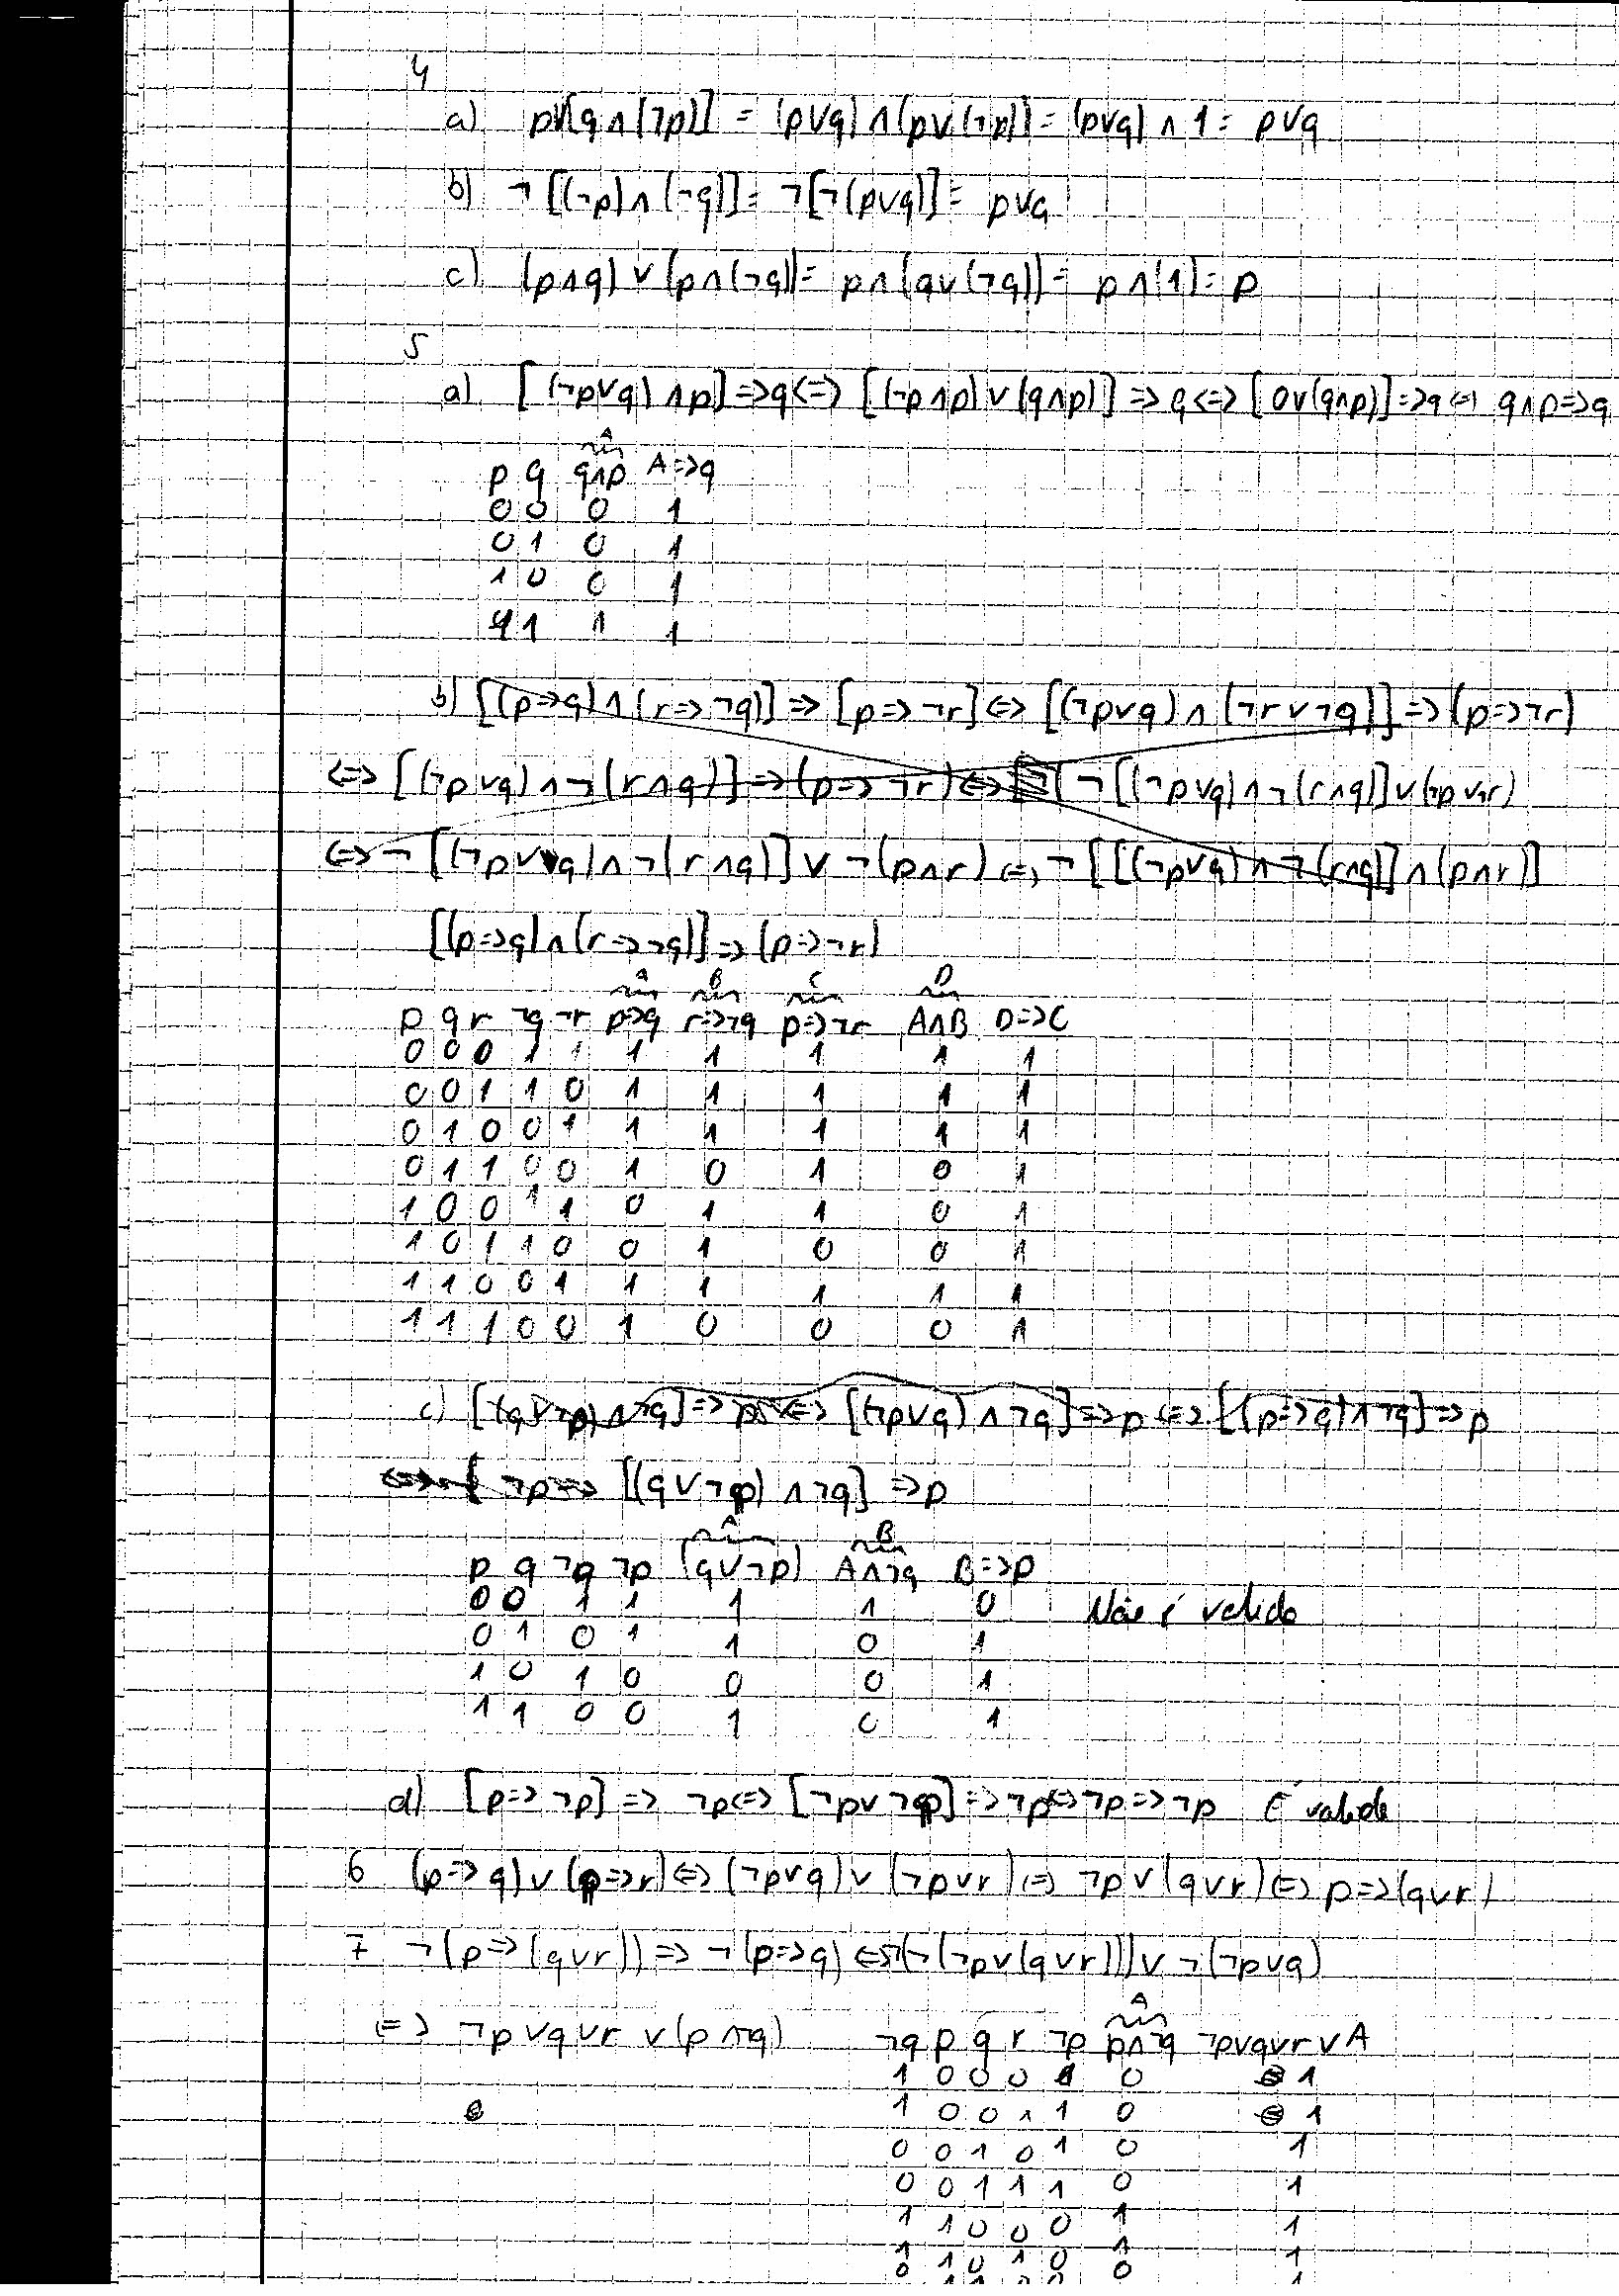 4
a) p∨[q∧(¬p)] = (p∨q)∧(p∨(¬p)) = (p∨q)∧1 = p∨q
b) ¬[(¬p)∧(¬q)] = ¬[¬(p∨q)] = p∨q
c) (p∧q)∨(p∧(¬q)) = p∧(q∨(¬q)) = p∧(1) = p
5
a) [(¬p∨q)∧p] => q <=> [(¬p∧p)∨(q∧p)] => q <=> [0∨(q∧p)] => q <=> q∧p => q
A
p q q∧p A=>q
0 0 0 1
0 1 0 1
1 0 0 1
1 1 1 1
b) [(p=>q)∧(r=>¬q)] => [p=>¬r] <=> [(¬p∨q)∧(¬r∨¬q)] => (p=>¬r)
<=> [(¬p∨q)∧¬(r∧q)] => (p=>¬r) <=> ¬[(¬p∨q)∧¬(r∧q)]∨(¬p∨¬r)
<=> ¬[(¬p∨q)∧¬(r∧q)]∨¬(p∧r) <=> ¬[[(¬p∨q)∧¬(r∧q)]∧(p∧r)]
[(p=>q)∧(r=>¬q)] => (p=>¬r)
A B C D
p q r ¬q ¬r p=>q r=>¬q p=>¬r A∧B D=>C
0 0 0 1 1 1 1 1 1 1
0 0 1 1 0 1 1 1 1 1
0 1 0 0 1 1 1 1 1 1
0 1 1 0 0 1 0 1 0 1
1 0 0 1 1 0 1 1 0 1
1 0 1 1 0 0 1 0 0 1
1 1 0 0 1 1 1 1 1 1
1 1 1 0 0 1 0 0 0 1
c) [(q∨¬p)∧¬q] => p <=> [(¬p∨q)∧¬q] => p <=> [(p=>q)∧¬q] => p
<=> ¬p => [(q∨¬p)∧¬q] => p
A B
p q ¬q ¬p (q∨¬p) A∧¬q B=>p
0 0 1 1 1 1 0 Não é valido
0 1 0 1 1 0 1
1 0 1 0 0 0 1
1 1 0 0 1 0 1
d) [p=>¬p] => ¬p <=> [¬p∨¬p] => ¬p <=> ¬p => ¬p É valido
6 (p=>q)∨(p=>r) <=> (¬p∨q)∨(¬p∨r) <=> ¬p∨(q∨r) <=> p=>(q∨r)
7 ¬(p=>(q∨r)) => ¬(p=>q) <=> ¬(¬(¬p∨(q∨r)))∨¬(¬p∨q)
<=> ¬p∨q∨r∨(p∧¬q)
A
¬q p q r ¬p p∧¬q ¬p∨q∨r∨A
1 0 0 0 1 0 1
1 0 0 1 1 0 1
0 0 1 0 1 0 1
0 0 1 1 1 0 1
1 1 0 0 0 1 1
1 1 0 1 0 1 1